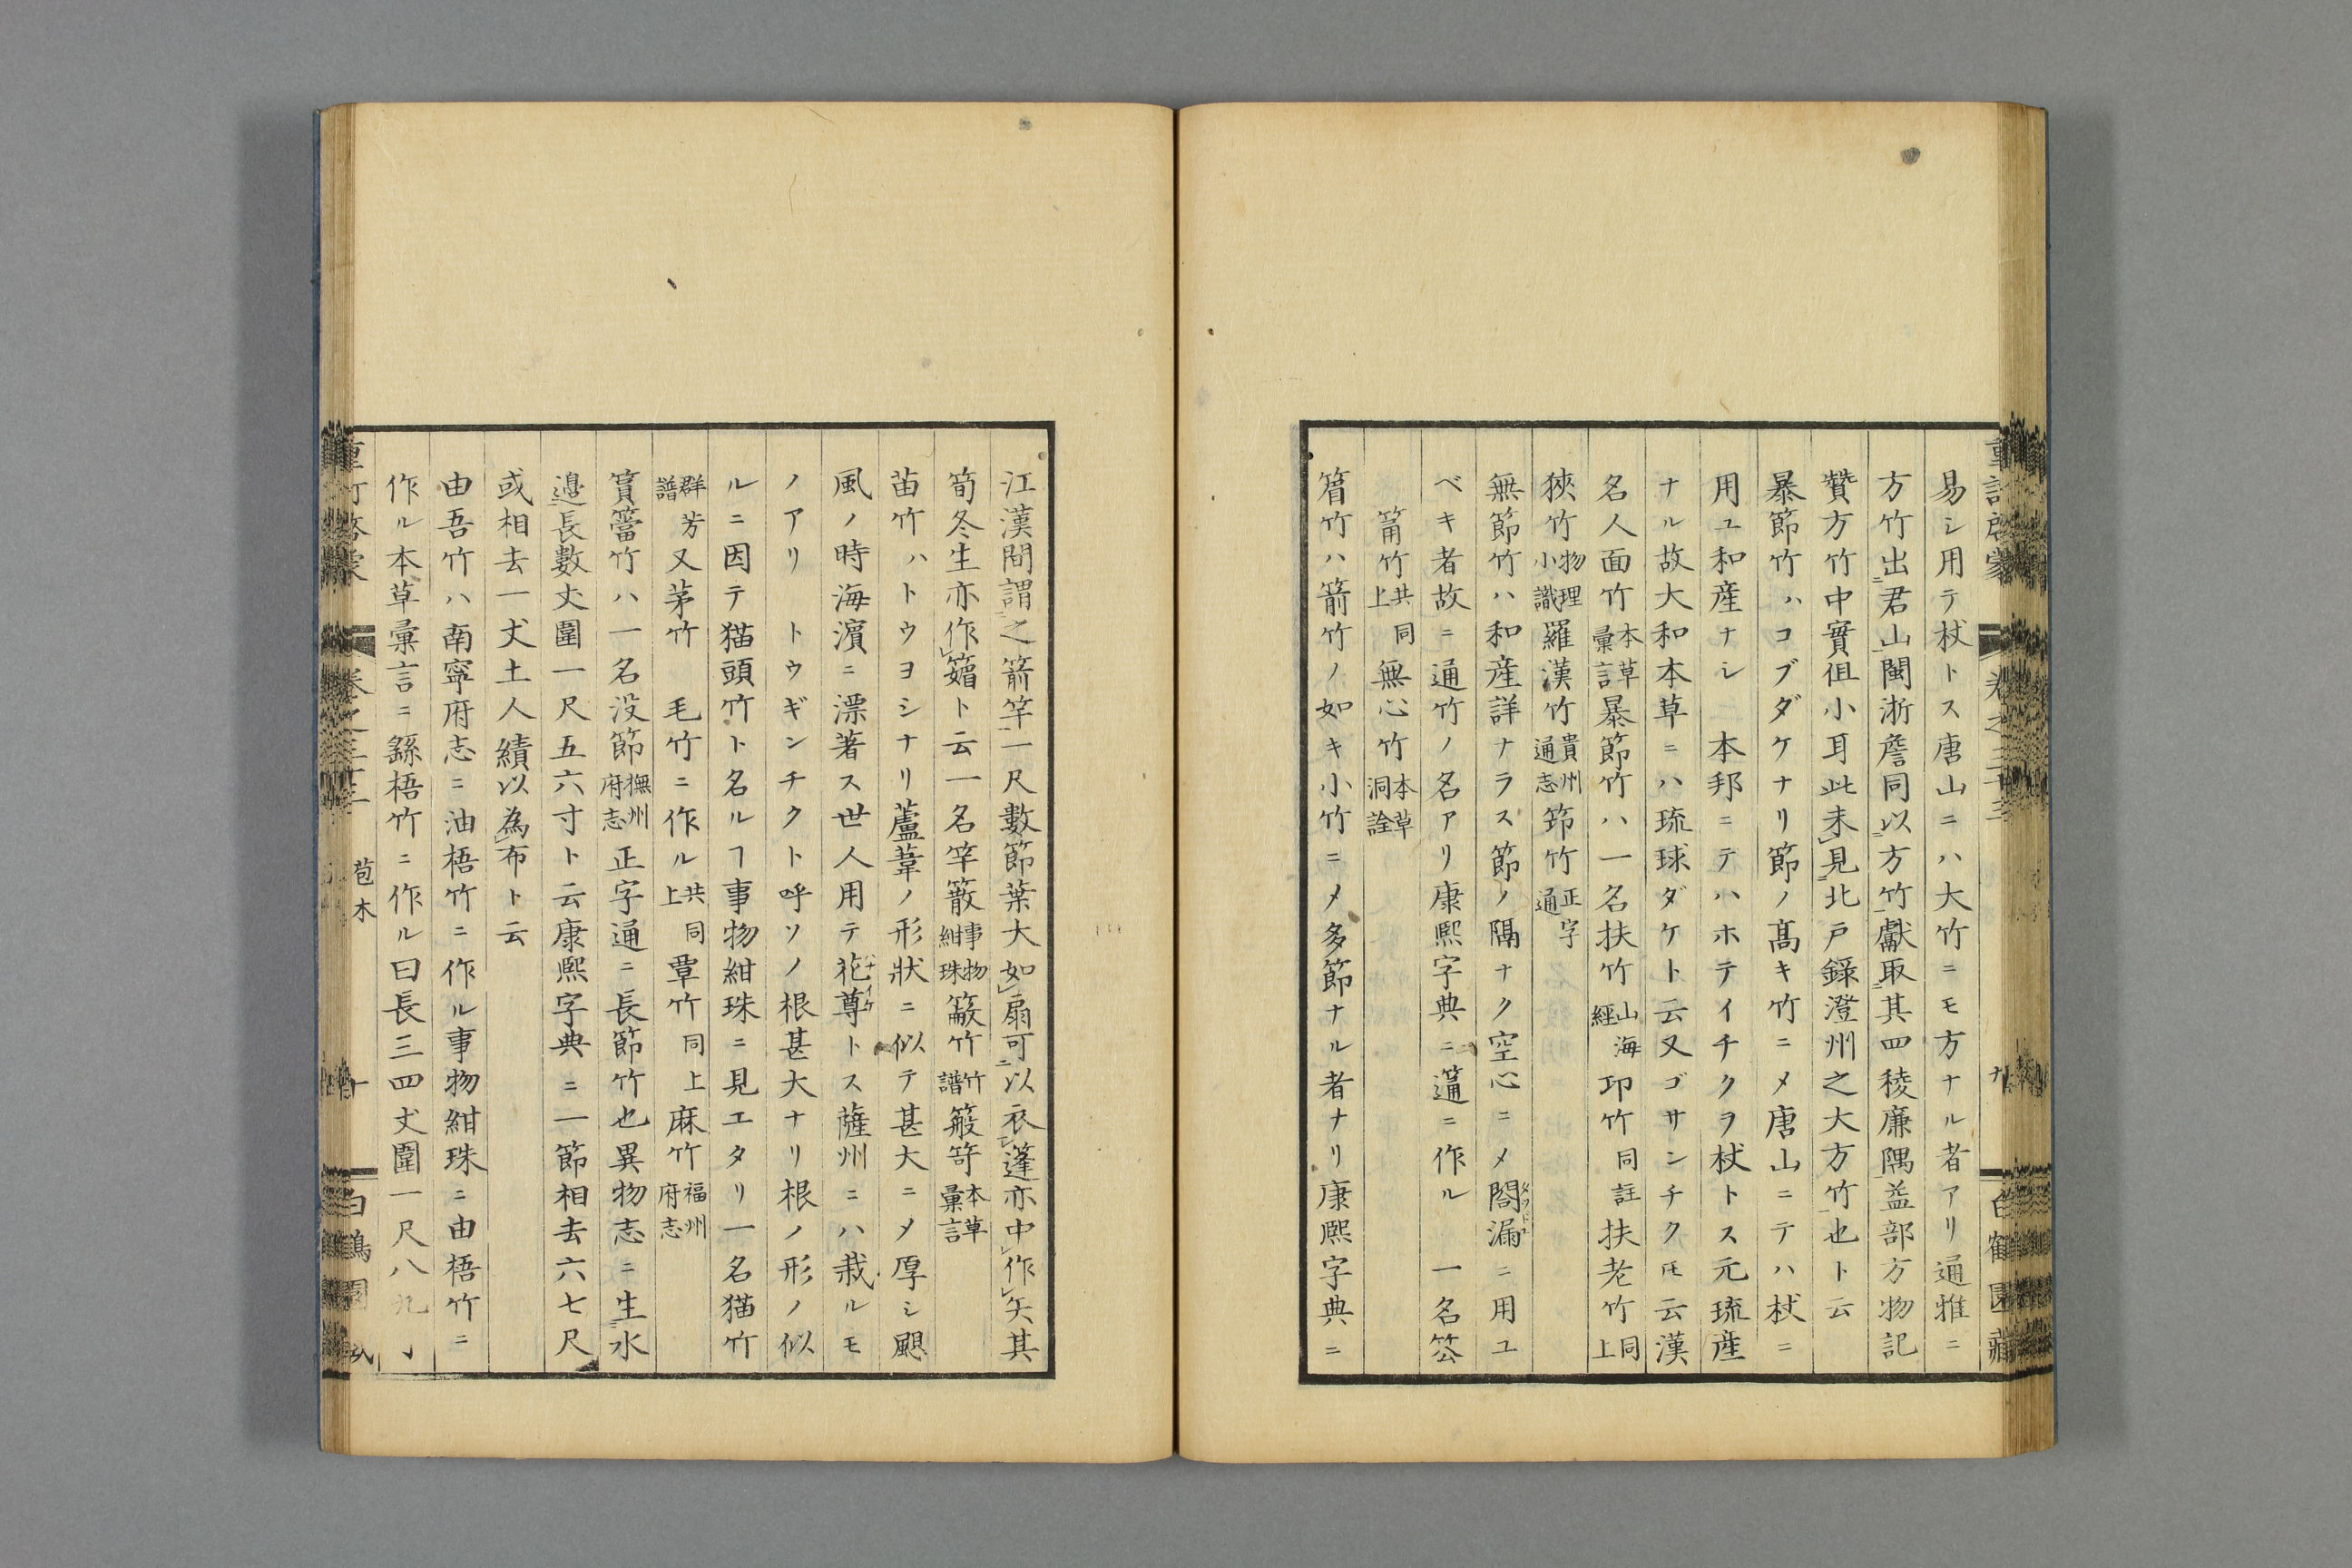 易シ用テ杖トス唐山ニハ大竹ニモ方ナル者アリ通雅ニ
方竹出君山閩浙詹同以方竹獻取其四稜廉隅益部方物記
贊方竹中實但小耳此未見北戸録澄州之大方竹也ト云
暴節竹ハコブダケナリ節ノ髙キ竹ニメ唐山ニテハ杖ニ
用ユ和産ナシ 本邦ニテハホテイチクヲ杖トス元琉産
ナル故大和本草ニハ琉球ダケト云又ゴサンチクトモ云漢
名人面竹本草彙言暴節竹ハ一名扶竹山海經卭竹同註扶老竹同上
狹竹物理小識羅漢竹貴州通志筇竹正字通
無節竹ハ和産詳ナラス節ノ隅ナク空心ニメ閤漏ニ用ユ
ベキ者故ニ通竹ノ名アリ康熙字典ニ䈏ニ作ル 一名箜
筩竹共同上無心竹本草洞詮
䈅竹ハ箭竹ノ如キ小竹ニメ多節ナル者ナリ康熙字典ニ
江漢間謂之箭竿一尺數節葉大如扇可以衣蓬亦中作矢其
筍冬生亦作篃ト云一名竿䉈事物紺珠簸竹竹譜䈜笴本草彙言
苗竹ハトウヨシナリ蘆葦ノ形狀ニ似テ甚大ニメ厚シ颶
風ノ時海濵ニ漂著ス世人用テ花尊トス薩州ニハ栽ルモ
ノアリ トウギンチクト呼ソノ根甚大ナリ根ノ形ノ似
ルニ因テ猫頭竹ト名ルヿ事物紺珠ニ見エタリ一名猫竹
群芳譜又茅竹 毛竹ニ作ル共同上蕈竹同上麻竹福州府志
篔簹竹ハ一名没節撫州府志正字通ニ長節竹也異物志ニ生水
邉長數丈圍一尺五六寸ト云康熙字典ニ一節相去六七尺
或相去一丈土人績以為布ト云
由吾竹ハ南寧府志ニ油梧竹ニ作ル事物紺珠ニ由梧竹ニ
作ル本草彙言ニ䌛梧竹ニ作ル曰長三四丈圍一尺八九寸
苞木